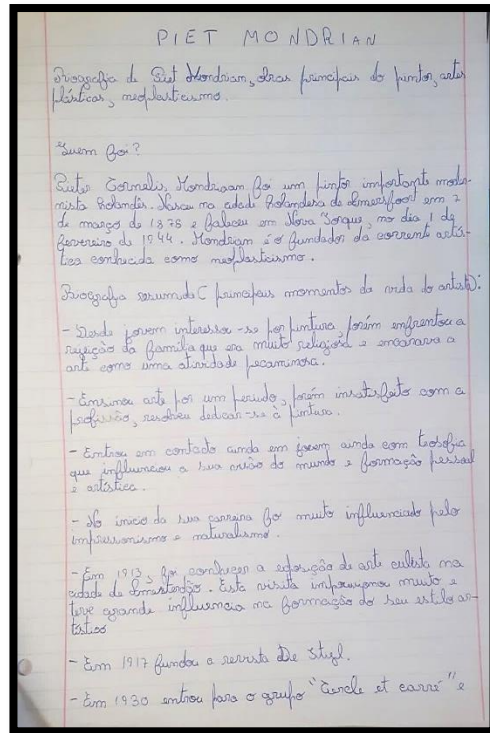 PIET MONDRIAN
Biografia de Piet Mondrian, obras principais do pintor, artes
plásticas, neoplasticismo.
Quem foi?
Pieter Cornelis Mondriaan foi um pintor importante moder-
nista holandês. Nasceu na cidade holandesa de Amersfoort em 7
de março de 1878 e faleceu em Nova Iorque, no dia 1 de
fevereiro de 1944. Mondrian é o fundador da corrente artís-
tica conhecida como neoplasticismo.
Biografia resumida ( principais momentos da vida do artista):
- Desde jovem interessou-se por pintura, porém enfrentou a
rejeição da família que era muito religiosa e encarava a
arte como uma atividade pecaminosa.
- Ensinou arte por um período, porém insatisfeito com a
profissão, resolveu dedicar-se à pintura.
- Entrou em contato ainda em jovem ainda com teosofia
que influenciou a sua visão do mundo e formação pessoal
e artística.
- No início da sua carreira foi muito influenciado pelo
impressionismo e naturalismo.
- Em 1913, foi conhecer a exposição de arte cubista na
cidade de Amsterdão. Esta visita impressionou muito e
teve grande influencia na formação do seu estilo ar-
tístico
- Em 1917 fundou a revista De Stijl.
- Em 1930 entrou para o grupo "Cercle et carré" e